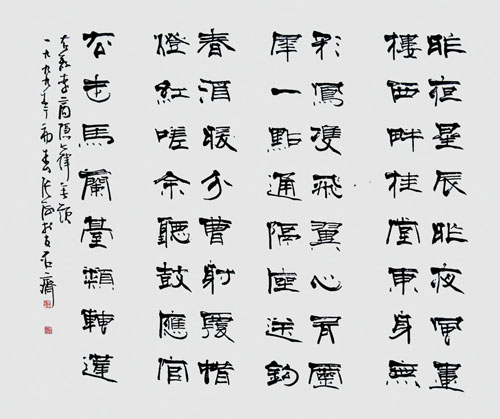 昨夜星辰昨夜風畫
樓西畔桂堂東身無
彩鳳雙飛翼心有靈
犀一點通隔座送鉤
春酒暖分曹射覆蜡
燈紅嗟余聽鼓應官
去走馬蘭臺類轉蓬
右錄李商隱律無題
一九九